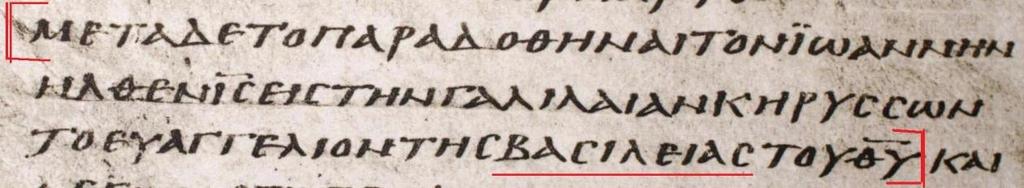 ΜΕΤΑΔΕΤΟΠΑΡΑΔΟΘΗΝΑΙΤΟΝΪΩΑΝΝΗΝ
ΗΛΘΕΝΙ̅Σ̅ΕΙΣΤΗΝΓΑΛΙΛΑΙΑΝΚΗΡΥΣΣΩΝ
ΤΟΕΥΑΓΓΕΛΙΟΝΤΗΣΒΑΣΙΛΕΙΑΣΤΟΥΘ̅Υ̅ΚΑΙ